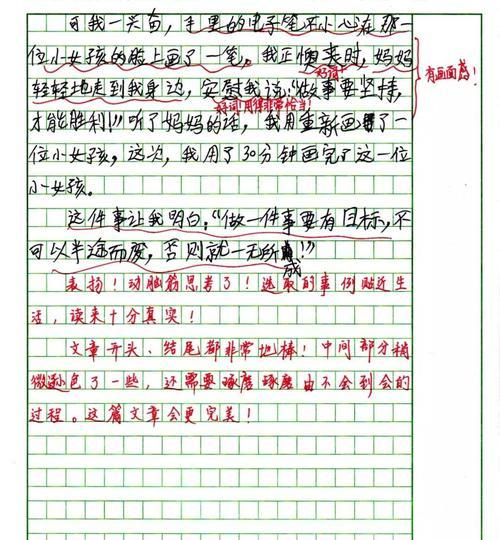 可我一兴奋，手里的电子笔不小心在那一
位小女孩的脸上画了一笔。我正懊丧时，妈妈
好词
有画面感！
轻轻地走到我身边，安慰我说：“做事要坚持，
好词！用得非常恰当！
才能胜利！”听了妈妈的话，我用重新画了一
位小女孩。这次，我用了30分钟画完了这一位
小女孩。
这件事让我明白：“做一件事要有目标，不
可以半途而废，否则就一无所成！”
表扬！动脑筋思考了！选取的事例贴近生
活，读来十分真实！
文章开头、结尾都非常地棒！中间部分稍
微逊色了一些，还需要琢磨琢磨由不会到会的
过程。这篇文章会更完美！